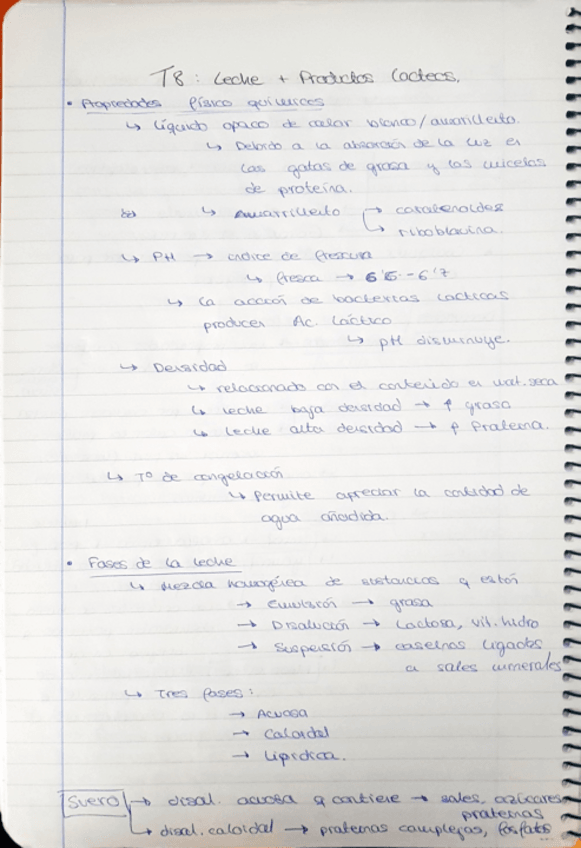 T8: Leche + Productos Lácteos.
• Propiedades físico químicas
↳ Líquido opaco de color blanco/amarillento.
↳ Debido a la absorción de la luz en
las gotas de grasa y las micelas
de proteína.
↳ Amarillento → carotenoides
↳ riboflavina.
↳ PH → índice de frescura
↳ fresca → 6'6 - 6'7
↳ La acción de bacterias lácticas
producen Ac. Láctico
↳ pH disminuye.
↳ Densidad
↳ relacionado con el contenido en mat. seca
↳ leche baja densidad → ↑ grasa
↳ leche alta densidad → ↑ Proteína.
↳ Tº de congelación
↳ Permite apreciar la cantidad de
agua añadida.
• Fases de la leche
↳ Mezcla homogénea de sustancias q están
→ Emulsión → grasa
→ Disolución → Lactosa, vit. hidro
→ Suspensión → caseínas ligadas
a sales minerales
↳ Tres fases:
→ Acuosa
→ Coloidal
→ Lipídica.
Suero → disol. acuosa q contiene → sales, azúcares
proteínas
↳ disol. coloidal → proteínas complejas, fosfatos